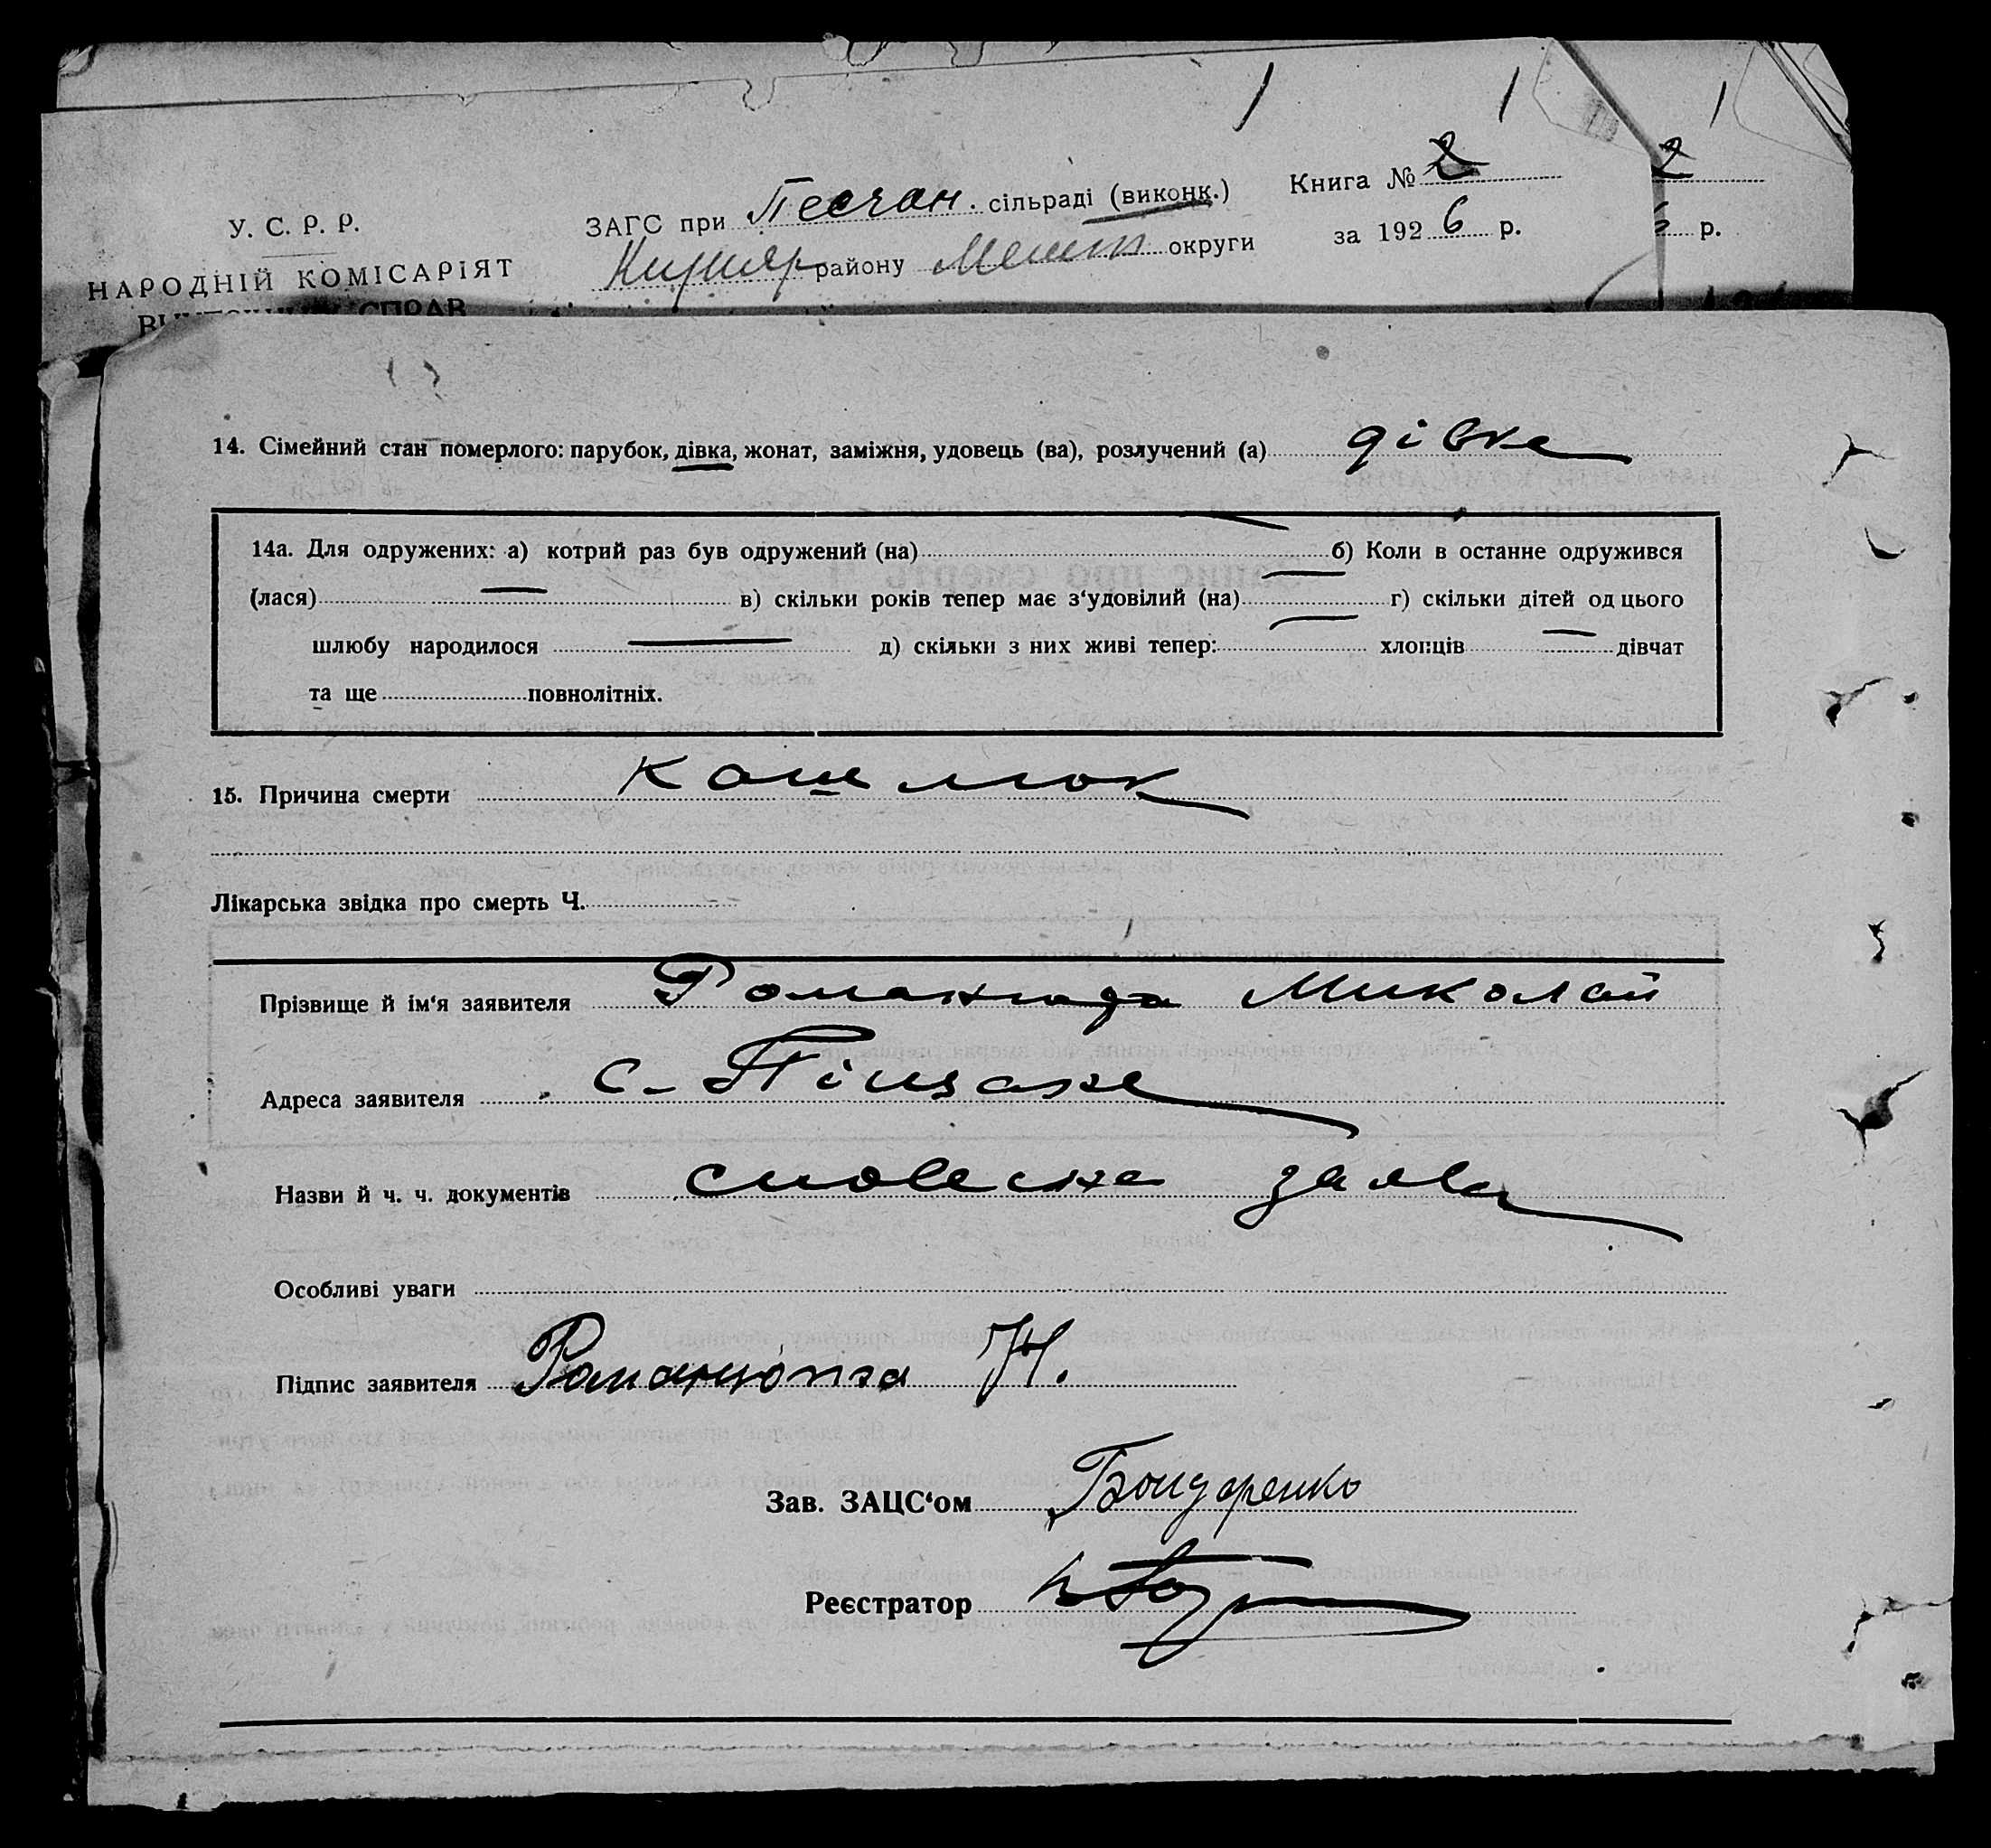 Книга № 2 2
ЗАГС при Песчан. сільраді (виконк.)
У. С. Р. Р. за 1926 р. р.
району округи
НАРОДНІЙ КОМІСАРІЯТ
СПРАВ
14. Сімейний стан померлого: парубок, дівка, жонат, заміжня, удовець (ва), розлучений (а) дівка
14а. Для одружених: а) котрий раз був одружений (на) б) Коли в останне одружився
(лася) в) скільки років тепер має з‘удовілий (на) г) скільки дітей од цього
шлюбу народилося д) скільки з них живі тепер: хлопців дівчат
та ще повнолітніх.
15. Причина смерти кашлюк
Лікарська звідка про смерть Ч.
Прізвище й ім‘я заявителя Миколай
Адреса заявителя с- Піщане
Назви й ч. ч. документів словесна заява
Особливі уваги
Підпис заявителя Н.
Зав. ЗАЦС‘ом Бондаренко
Реєстратор